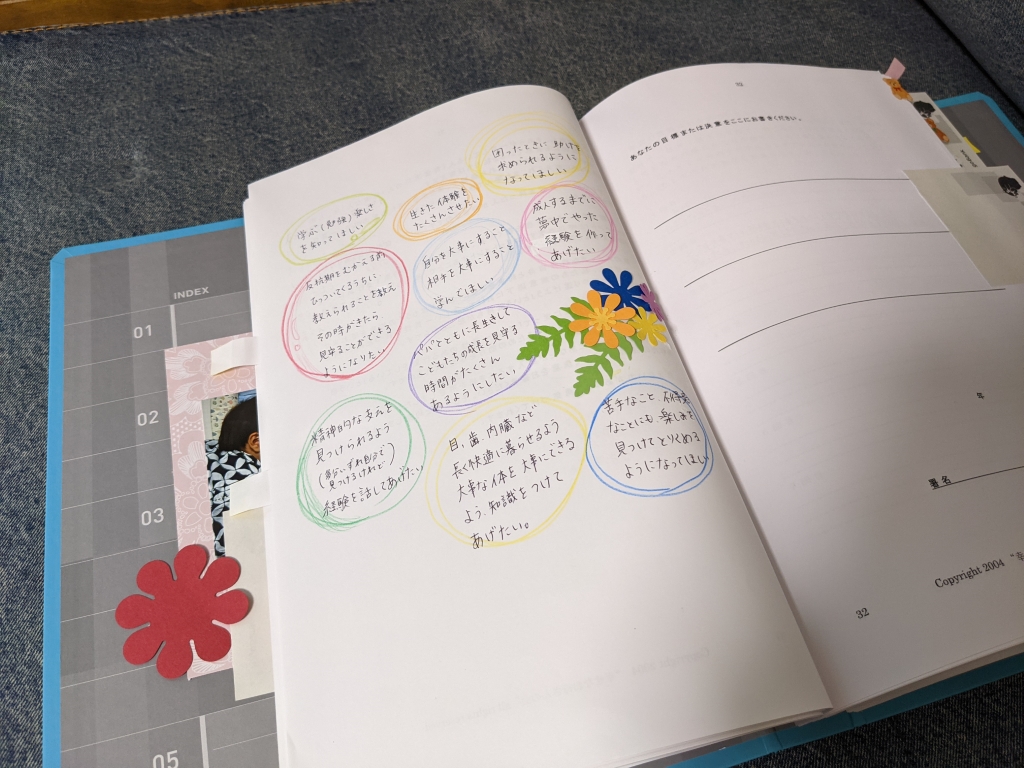 INDEX
01
02
03
05
困ったときに助けを
求められるように
なってほしい
学ぶ(勉強)楽しさ
を知ってほしい
生きた体験を
たくさんさせたい
成人するまでに
夢中でやった
経験を作って
あげたい
自分を大事にすること
相手を大事にすること
学んでほしい
反抗期をむかえるまで
ひっついてくるうちに
教えられることを教え
その時がきたら
見守ることができる
ようになりたい
パパとともに長生きして
こどもたちの成長を見守る
時間がたくさん
あるようにしたい
精神的な支えを
見つけられるよう
(いずれ自分で
見つけるけれど)
経験を話してあげたい
目、歯、内臓など
長く快適に暮らせるよう
大事な体を大事にできる
よう、知識をつけて
あげたい。
苦手なこと、不得意
なことにも、楽しみを
見つけてとりくめる
ようになってほしい
あなたの目標または決意をここにお書きください。
年
署名
Copyright 2004
32